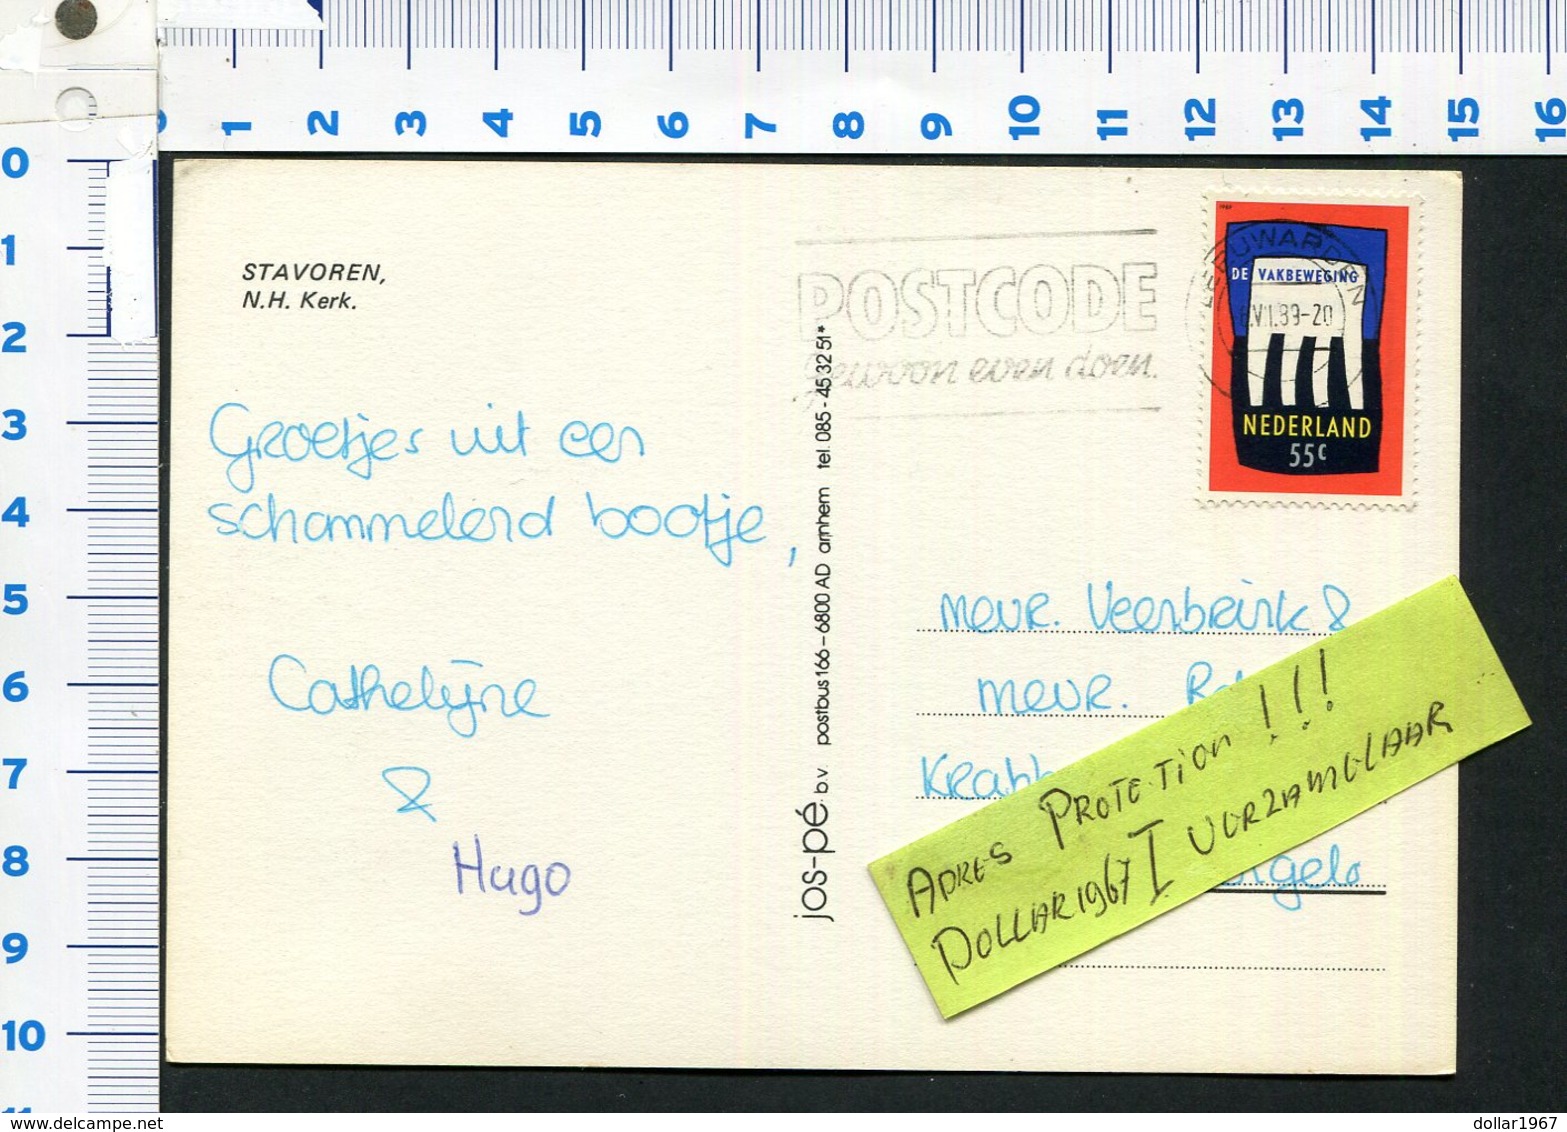 0 1 2 3 4 5 6 7 8 9 10 11 12 13 14 15 16
0
1
2
3
4
5
6
7
8
9
10
11
STAVOREN,
N.H. Kerk.
POSTCODE
gewoon even doen.
LEEUWARDEN
VII.89-20
DE VAKBEWEGING
NEDERLAND
55c
Groetjes uit een
schommelend bootje,
Cathelijne
&
Hugo
jos-pé b.v. postbus 166 – 6800 AD arnhem tel. 085 - 45 32 51*
mevr. Veenbrink &
mevr.
ngelo
ADRES PROTECTION !!!
DOLLAR1967 I VURZAMELAAR
dollar1967